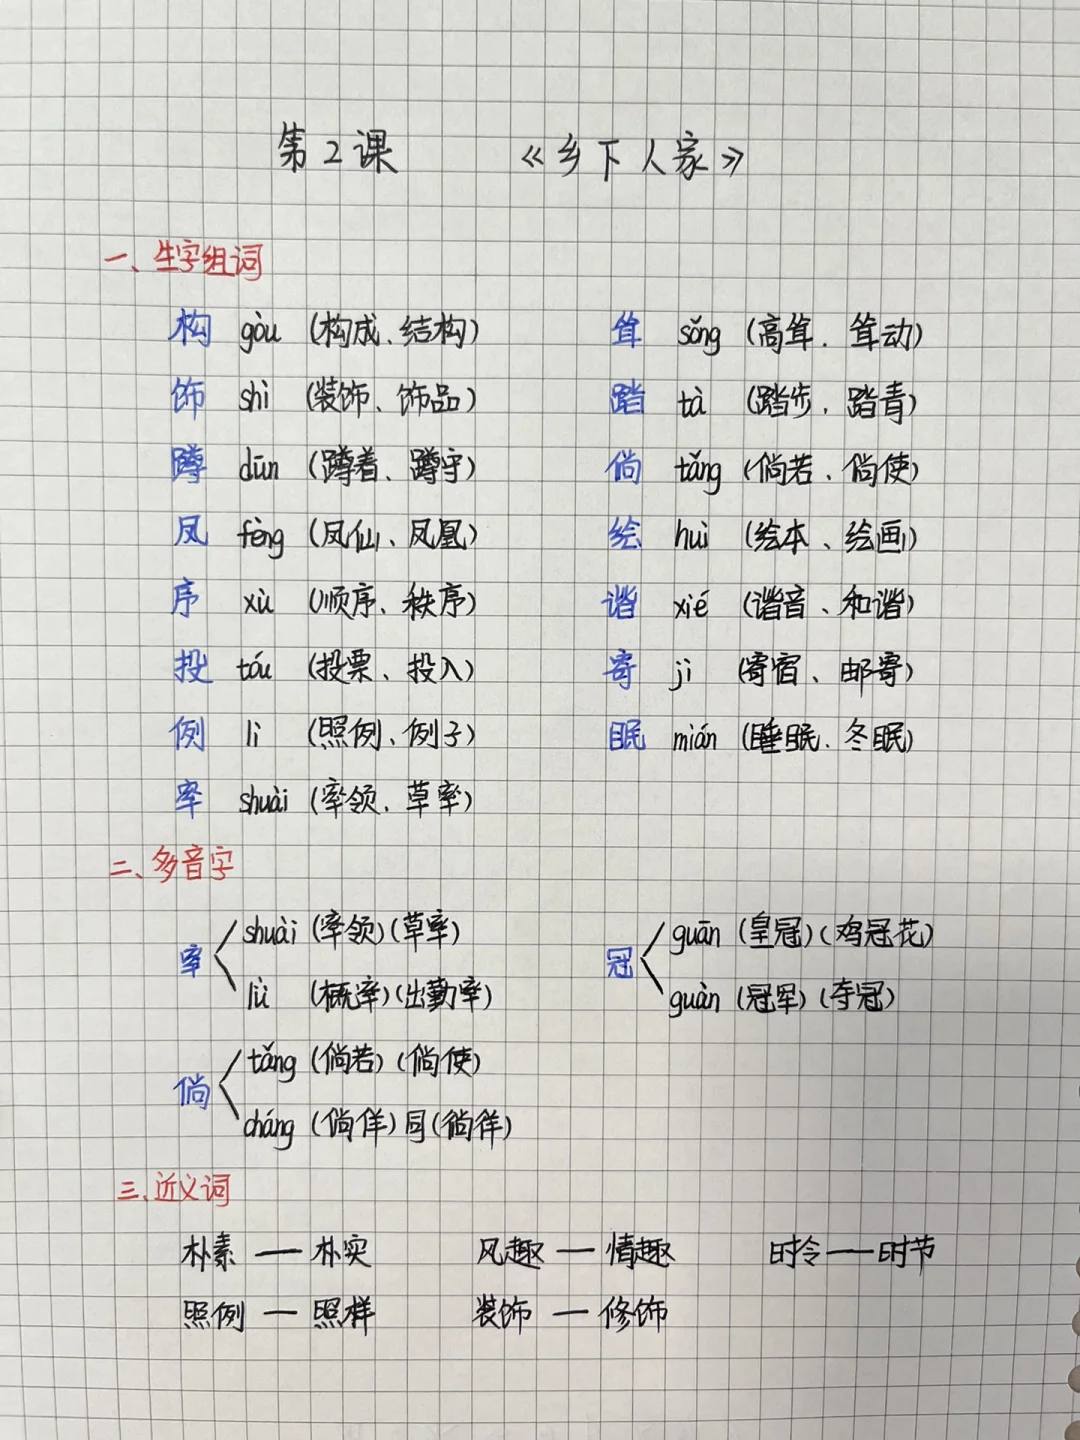 第2课 《乡下人家》
一、生字组词
构 gòu (构成、结构) 耸 sǒng (高耸、耸动)
饰 shì (装饰、饰品) 踏 tà (踏步、踏青)
蹲 dūn (蹲着、蹲守) 倘 tǎng (倘若、倘使)
凤 fèng (凤仙、凤凰) 绘 huì (绘本、绘画)
序 xù (顺序、秩序) 谐 xié (谐音、和谐)
投 tóu (投票、投入) 寄 jì (寄宿、邮寄)
例 lì (照例、例子) 眠 mián (睡眠、冬眠)
率 shuài (率领、草率)
二、多音字
率 shuài (率领)(草率) 冠 guān (皇冠)(鸡冠花)
lǜ (概率)(出勤率) guàn (冠军)(夺冠)
倘 tǎng (倘若)(倘使)
cháng (倘佯)同(徜徉)
三、近义词
朴素 — 朴实 风趣 — 情趣 时令 — 时节
照例 — 照样 装饰 — 修饰